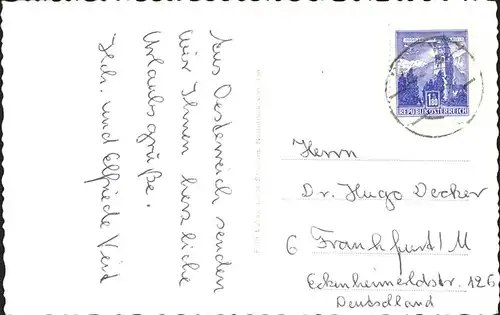 Aus Oesterreich senden
wir Ihnen herzliche
Urlaubsgrüße.
Hch. und Elfriede Veit
REPUBLIK ÖSTERREICH
Herrn
Dr. Hugo Decker
6 Frankfurt/M
Eckenheimerldstr. 126
Deutschland